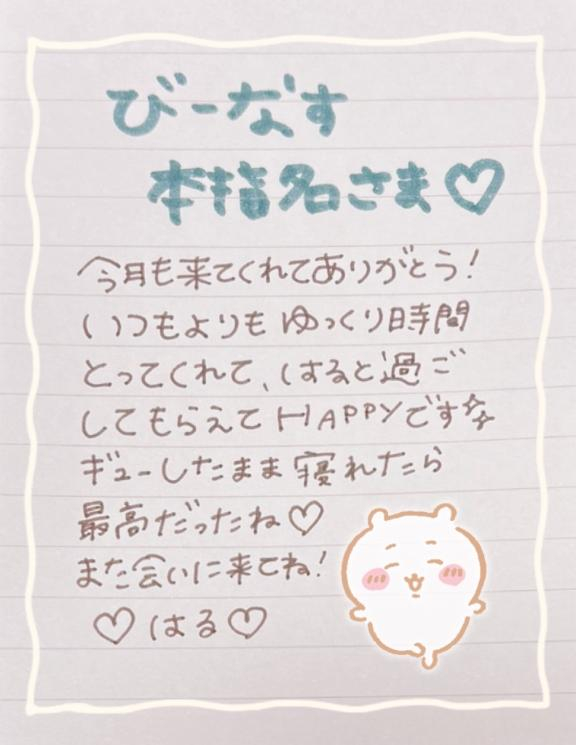 びーなす
本指名さま♡
今月も来てくれてありがとう!
いつもよりもゆっくり時間
とってくれて、はると過ご
してもらえてHAPPYです✨
ギューしたまま寝れたら
最高だったね♡
また会いに来てね!
♡はる♡